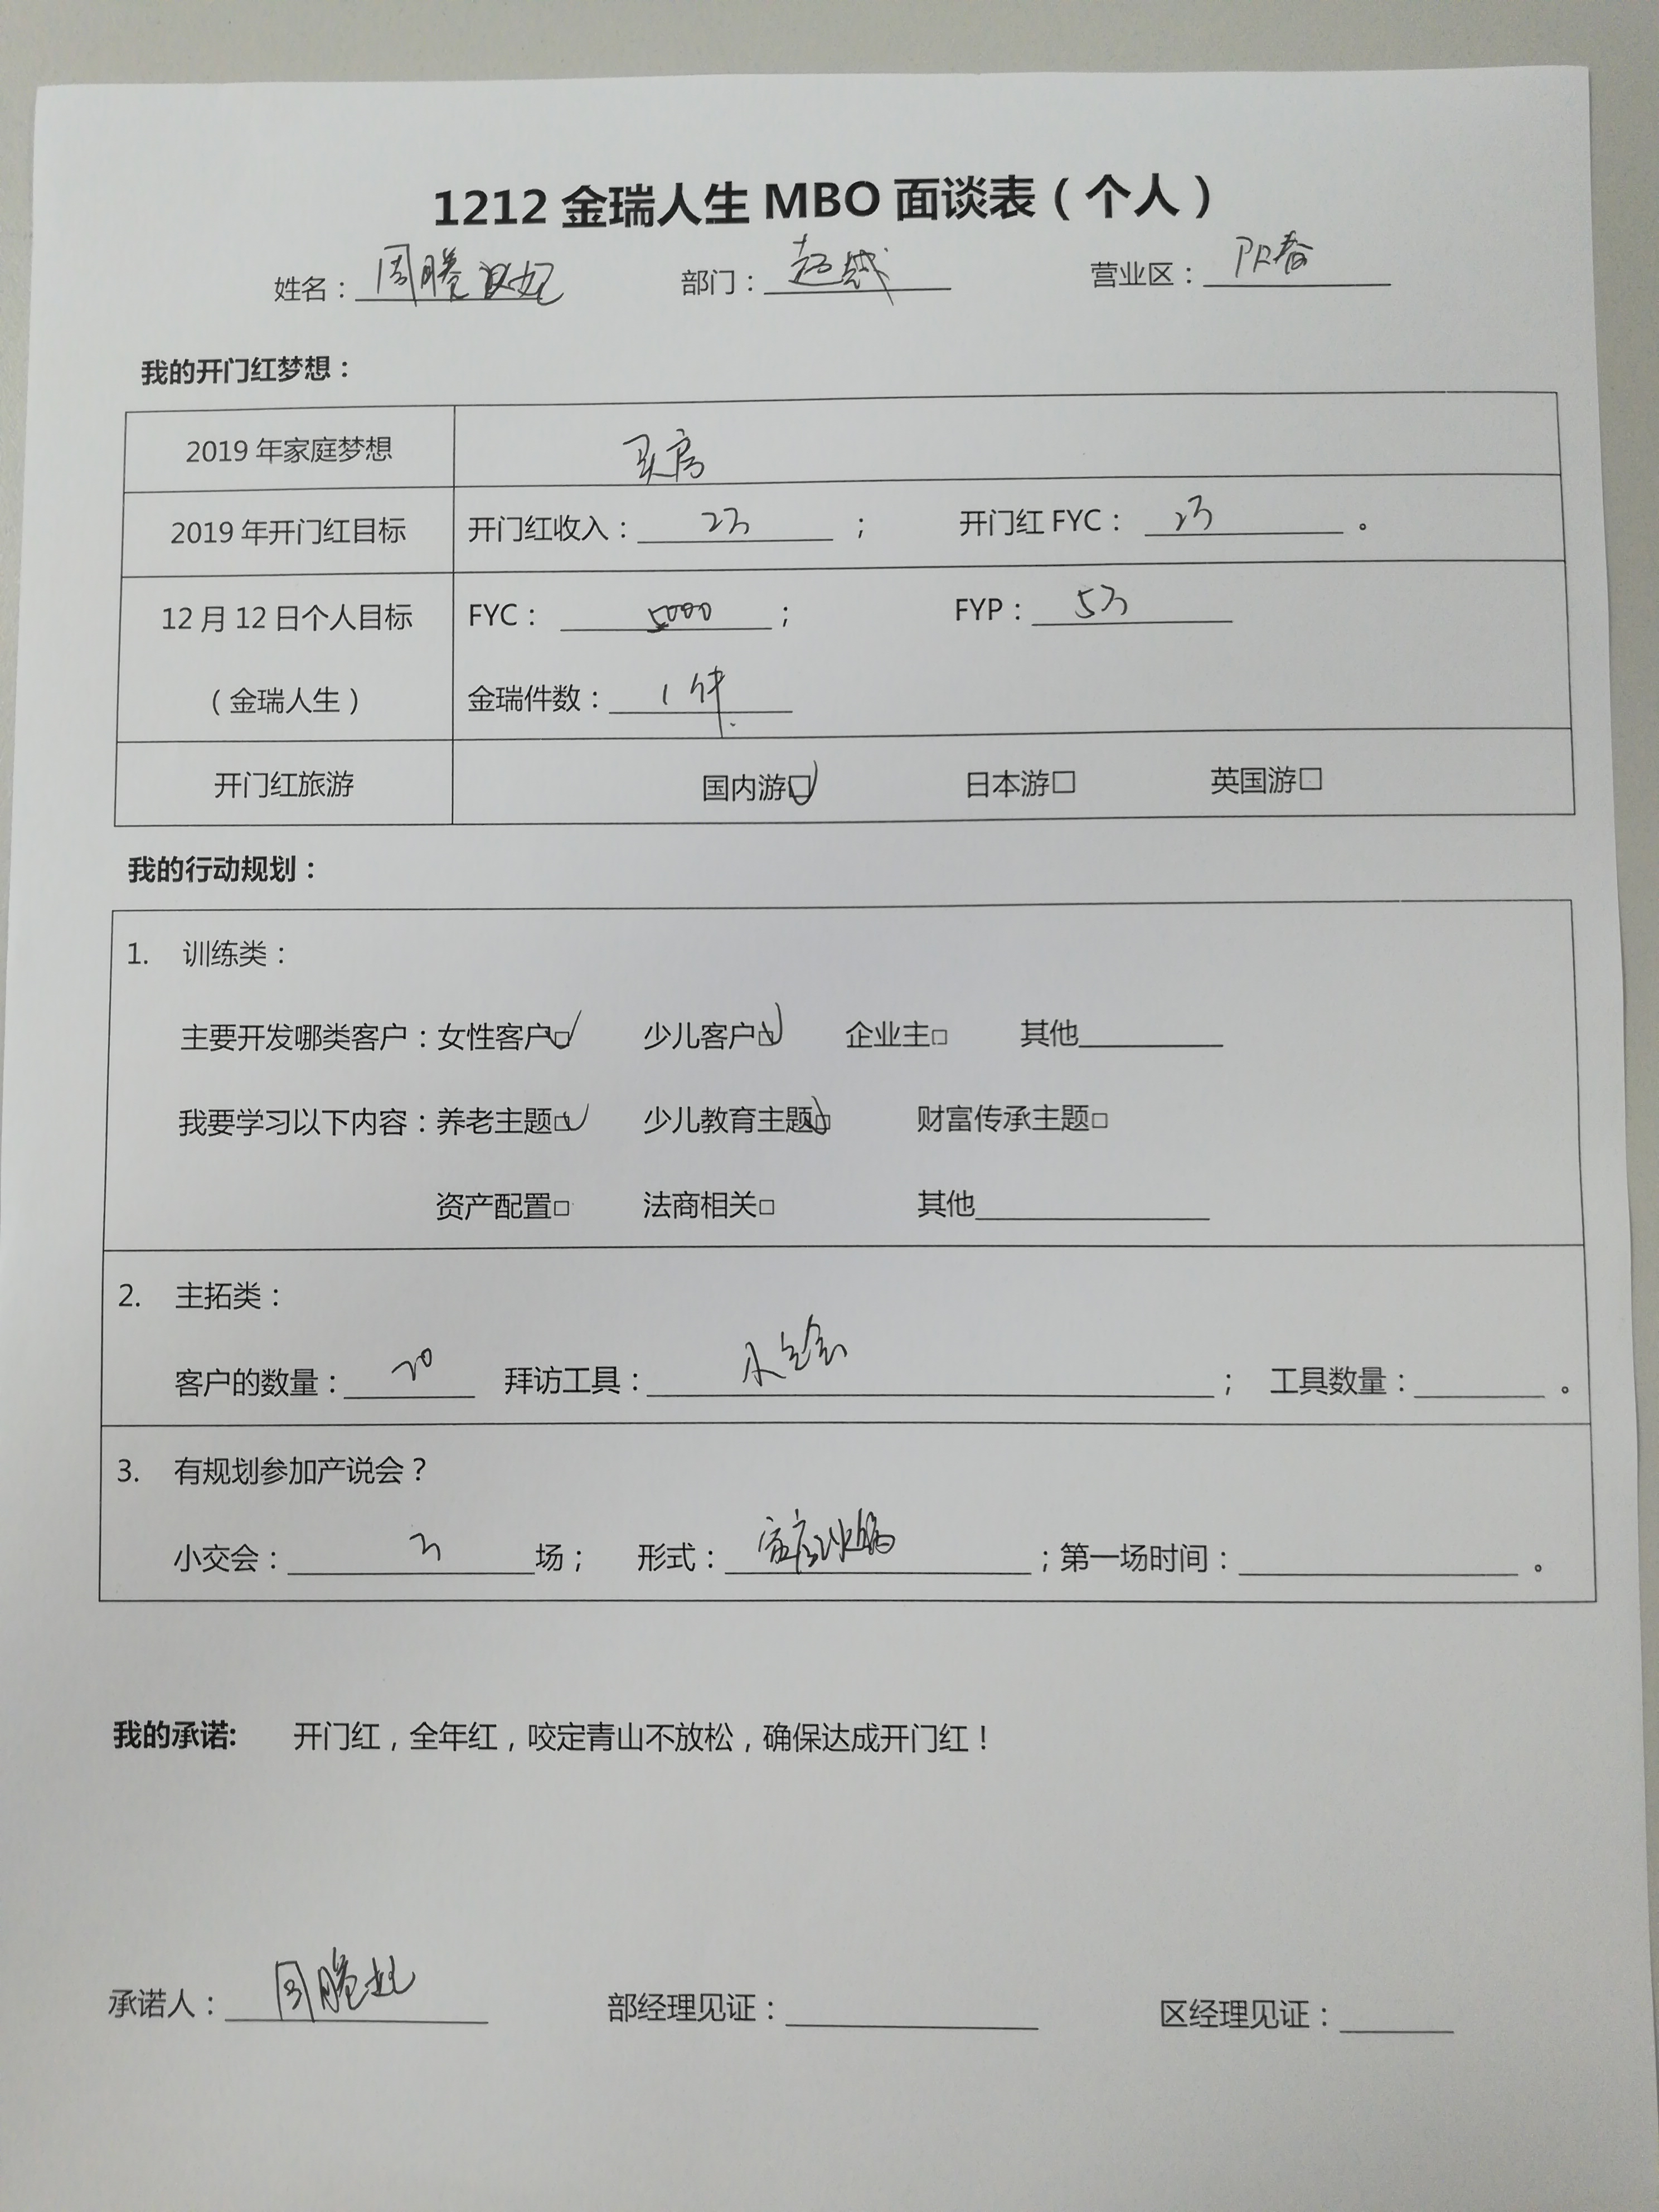 1212 金瑞人生 MBO 面谈表（个人）
姓名：周 部门：超越 营业区：阳春
我的开门红梦想：
2019 年家庭梦想 买房
2019 年开门红目标 开门红收入：2万； 开门红 FYC：2万。
12 月 12 日个人目标 FYC：5000； FYP：5万
（金瑞人生） 金瑞件数：1件
开门红旅游 国内游☑ 日本游□ 英国游□
我的行动规划：
1. 训练类：
主要开发哪类客户：女性客户☑ 少儿客户☑ 企业主□ 其他
我要学习以下内容：养老主题☑ 少儿教育主题☑ 财富传承主题□
资产配置□ 法商相关□ 其他
2. 主拓类：
客户的数量：20 拜访工具：； 工具数量：。
3. 有规划参加产说会？
小交会：场； 形式：；第一场时间：。
我的承诺: 开门红，全年红，咬定青山不放松，确保达成开门红！
承诺人：周 部经理见证： 区经理见证：